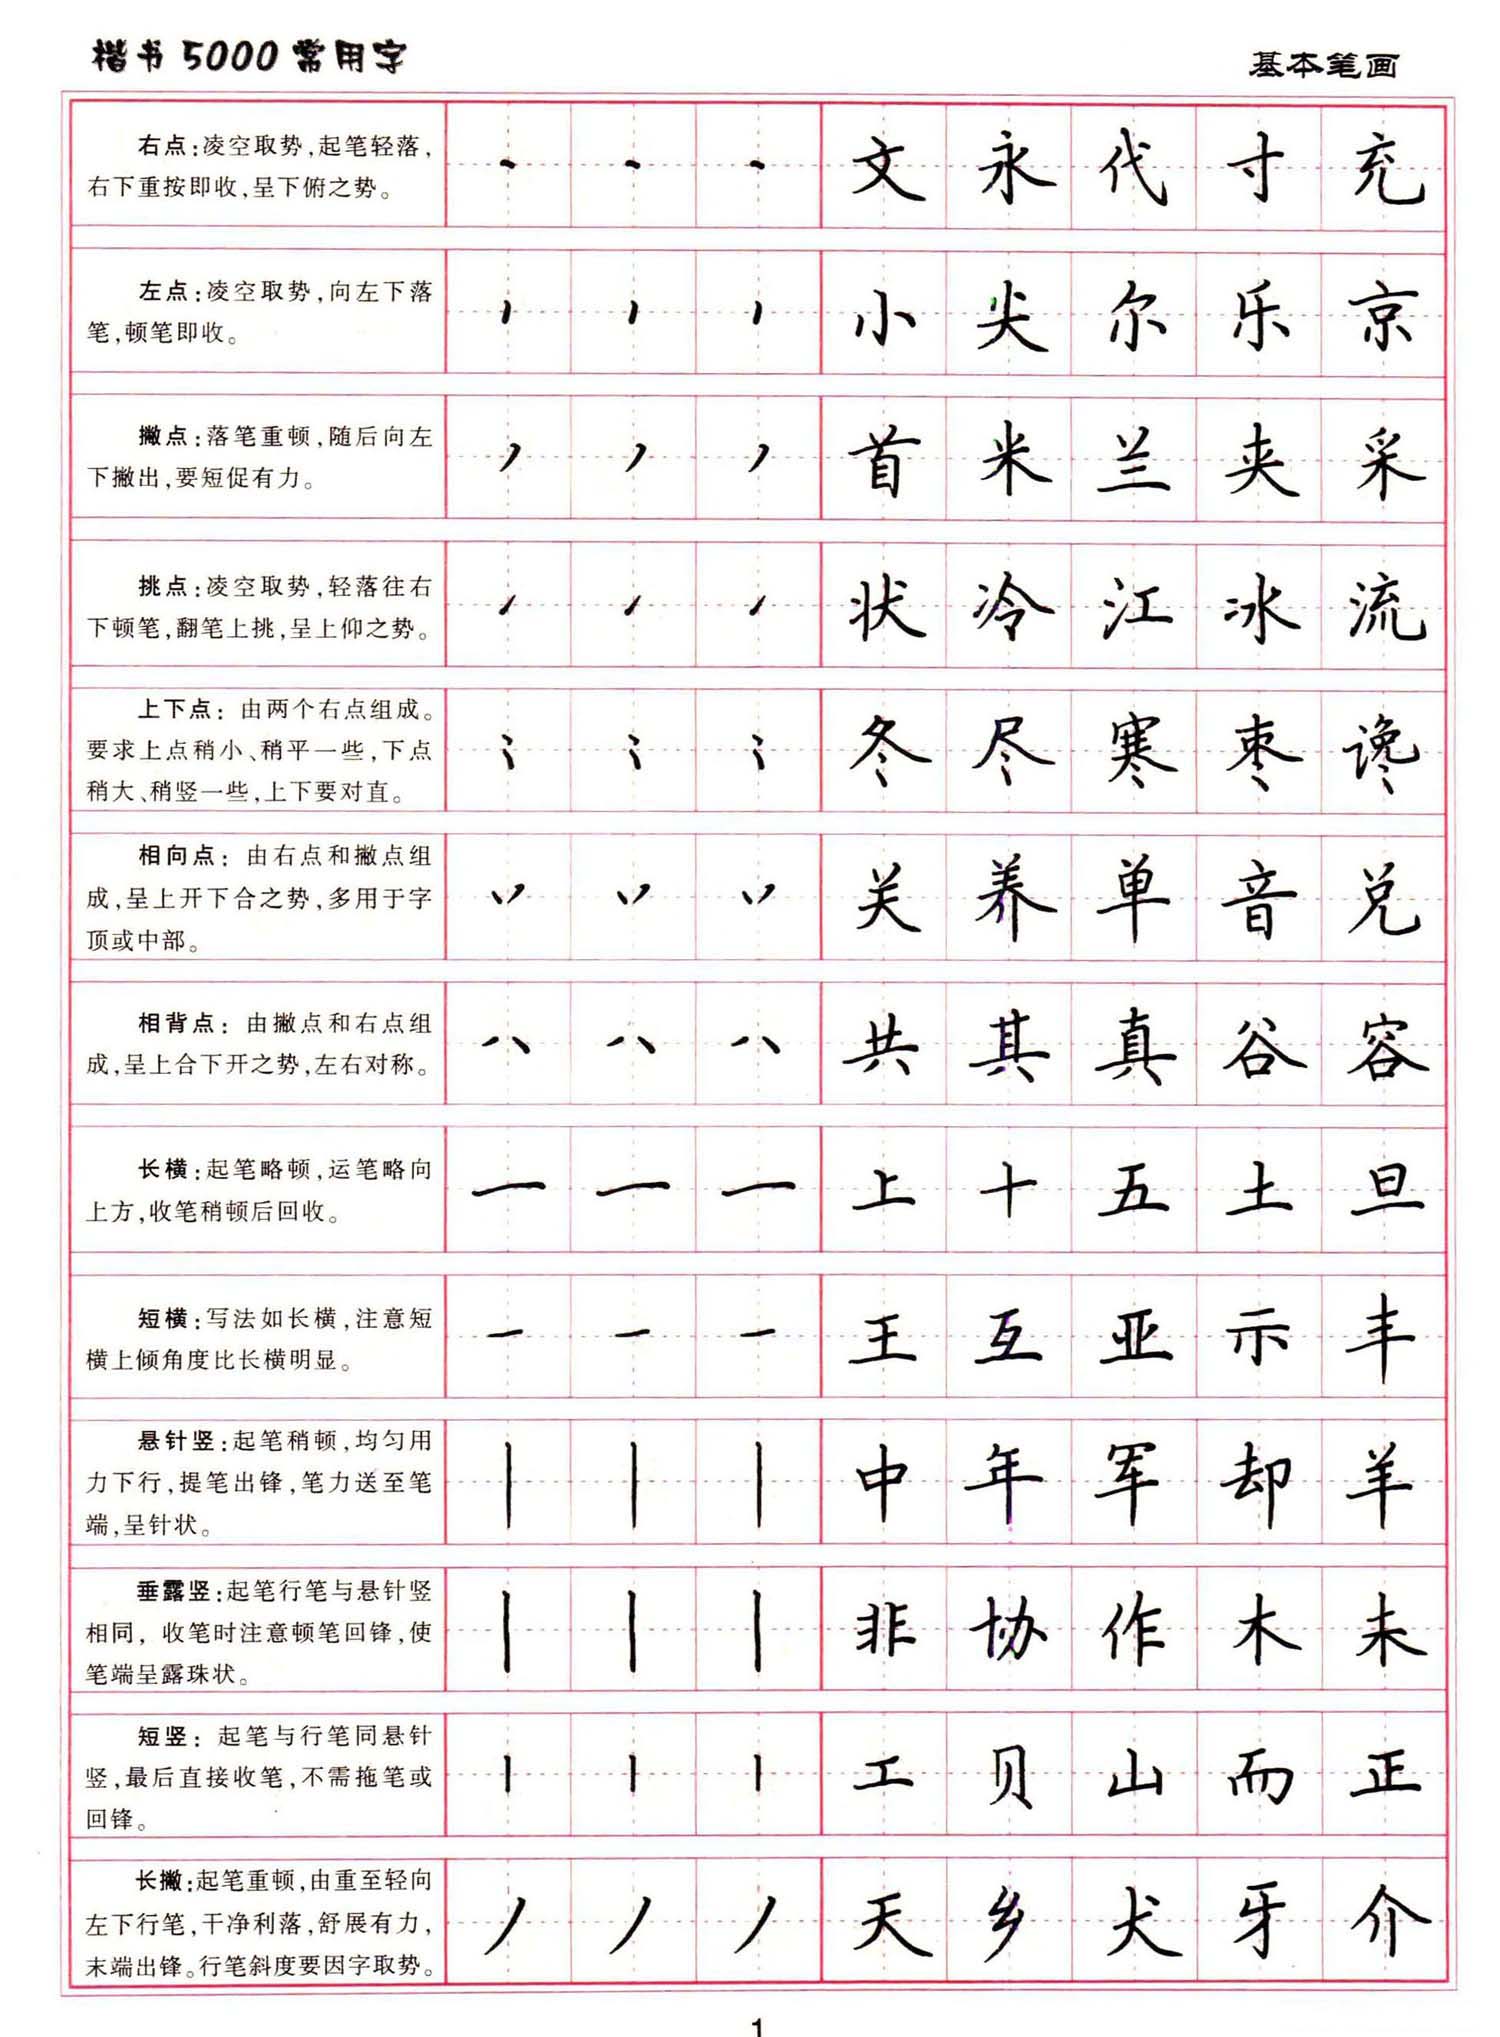 楷书5000常用字
基本笔画
右点:凌空取势,起笔轻落,
右下重按即收,呈下俯之势。
文 永 代 寸 充
左点:凌空取势,向左下落
笔,顿笔即收。
小 尖 尔 乐 京
撇点:落笔重顿,随后向左
下撇出,要短促有力。
首 米 兰 夹 采
挑点:凌空取势,轻落往右
下顿笔,翻笔上挑,呈上仰之势。
状 冷 江 冰 流
上下点:由两个右点组成。
要求上点稍小、稍平一些,下点
稍大、稍竖一些,上下要对直。
冬 尽 寒 枣 谗
相向点:由右点和撇点组
成,呈上开下合之势,多用于字
顶或中部。
关 养 单 音 兑
相背点:由撇点和右点组
成,呈上合下开之势,左右对称。
共 其 真 谷 容
长横:起笔略顿,运笔略向
上方,收笔稍顿后回收。
上 十 五 土 旦
短横:写法如长横,注意短
横上倾角度比长横明显。
王 互 亚 示 丰
悬针竖:起笔稍顿,均匀用
力下行,提笔出锋,笔力送至笔
端,呈针状。
中 年 军 却 羊
垂露竖:起笔行笔与悬针竖
相同,收笔时注意顿笔回锋,使
笔端呈露珠状。
非 协 作 木 未
短竖:起笔与行笔同悬针
竖,最后直接收笔,不需拖笔或
回锋。
工 贝 山 而 正
长撇:起笔重顿,由重至轻向
左下行笔,干净利落,舒展有力,
末端出锋。行笔斜度要因字取势。
天 乡 犬 牙 介
1